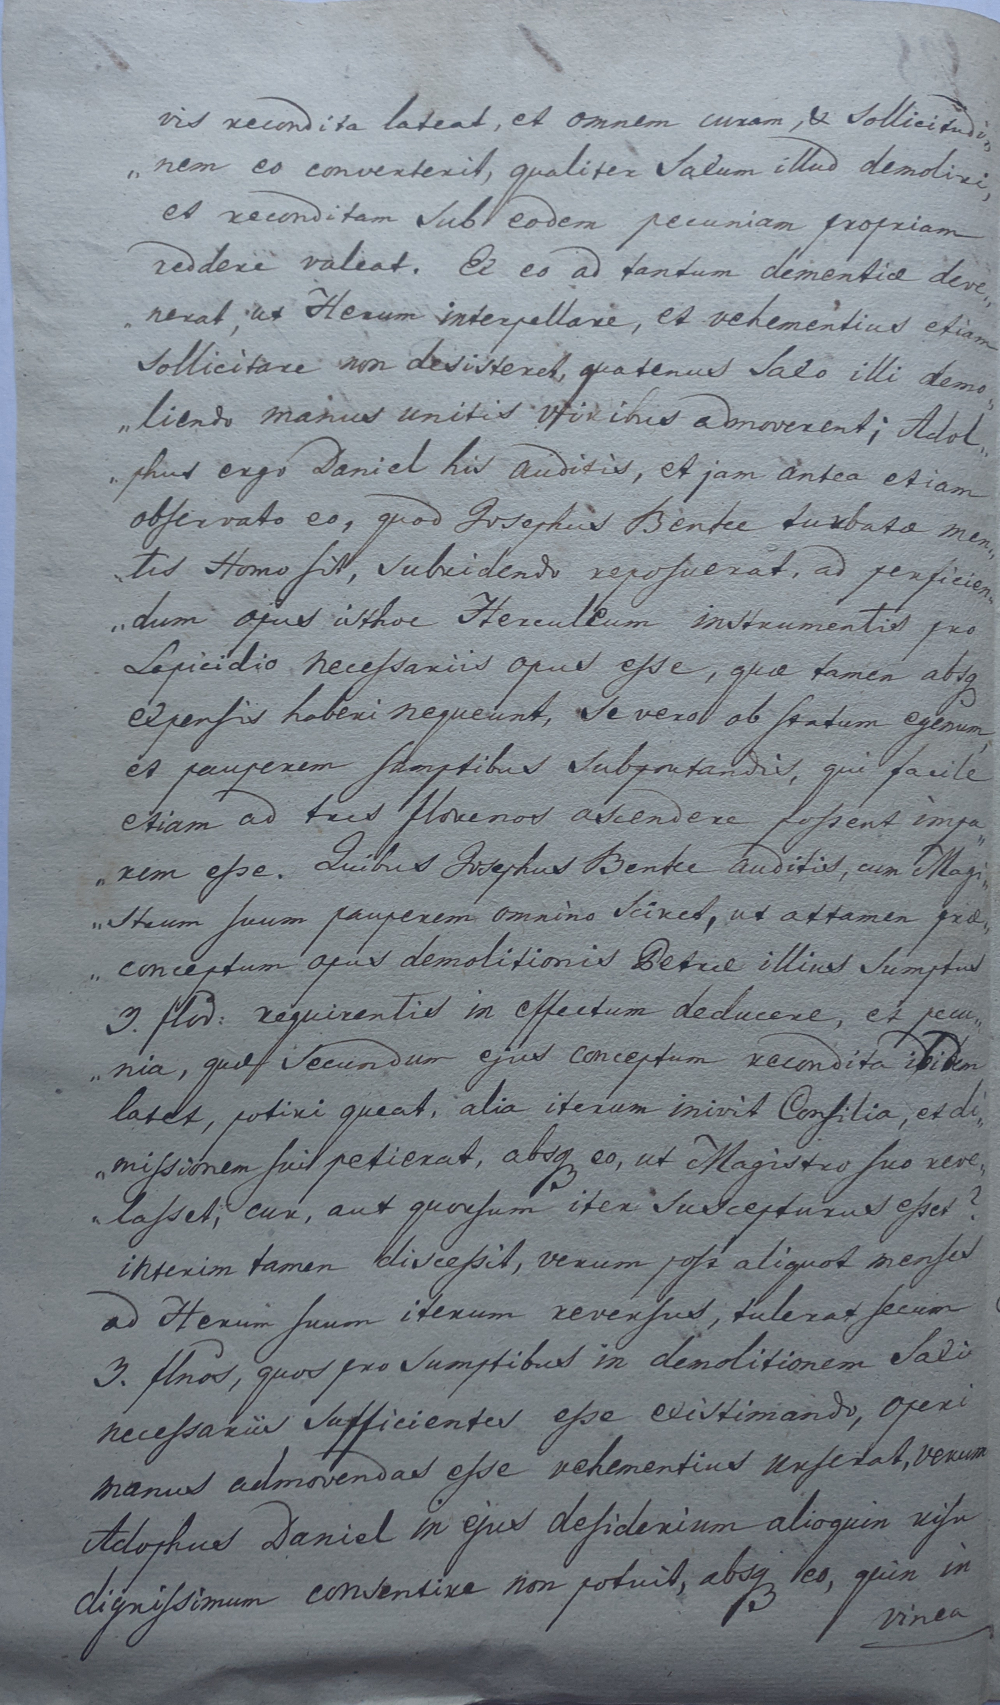 vis recondita lateat, et omnem curam, & Sollicitudi„
„nem eo converterit, qualiter Saxum illud demoliri,
et reconditam sub eodem pecuniam propriam
reddere valeat. Et eo ad tantum dementiæ deve„
„nerat, ut Herum interpellare, et vehementius etiam
Sollicitare non desisteret, quatenus Saxo illi demo„
„liendo manus unitis viribus admoverent; Adol„
„phus ergo Daniel his auditis, et jam antea etiam
observato eo, quod Josephus Benke turbatæ men„
„tis Homo sit, subridendo reposuerat, ad perficien„
„dum opus isthoc Herculeum instrumentis pro
Lapicidio necessariis opus esse, quæ tamen absq
expensis haberi nequeunt, se vero ob statum egenum,
et pauperem sumptibus subportandis, qui facile
etiam ad tres florenos ascendere possent impa„
„rem esse. Quibus Josephus Benke auditis, cum Magi„
„strum suum pauperem omnino sciret, ut attamen præ„
„conceptum opus demolitionis Petræ illius sumptus
3. flod: requirentis in effectum deducere, et pecu„
„nia, quæ secundum ejus conceptum recondita ibidem
latet, potiri queat, alia iterum inivit Consilia, et di„
„missionem sui petierat, absq eo, ut Magistro suo reve„
„lasset, cur, aut quorsum iter suscepturus esset?
interim tamen discessit, verum post aliquot menses
ad Herum suum iterum reversus, tulerat secum
3. flnos, quos pro sumptibus in demolitionem Saxi
necessariis sufficientes esse existimando, operi
manus admovendas esse vehementius urserat, verum
Adophus Daniel in ejus desiderium alioquin risu
dignissimum consentire non potuit, absq eo, quin in
vinea